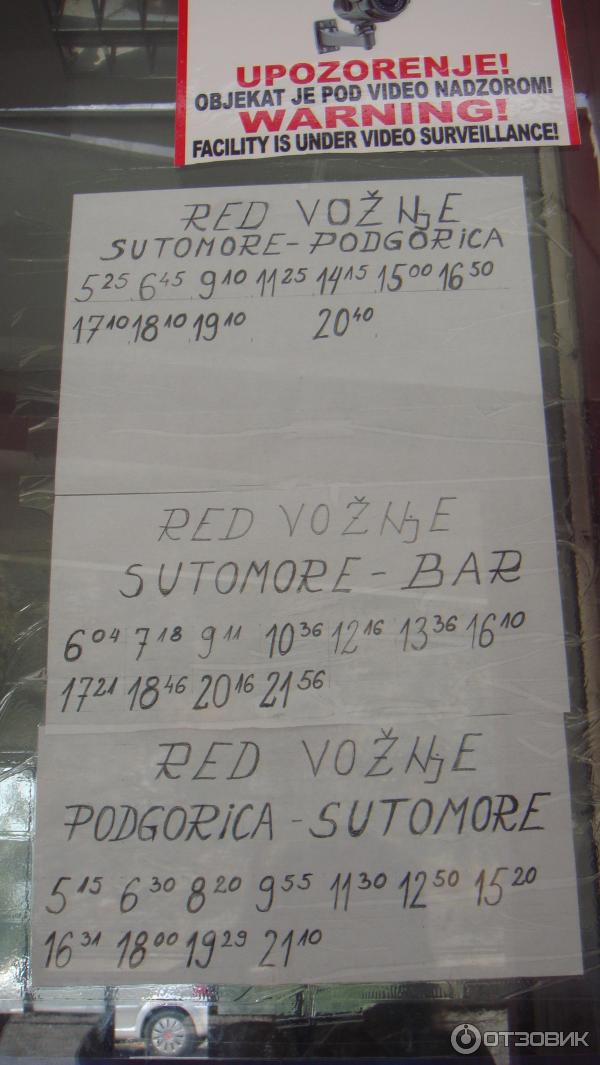 UPOZORENJE!
OBJEKAT JE POD VIDEO NADZOROM!
WARNING!
FACILITY IS UNDER VIDEO SURVEILLANCE!
RED VOŽNjE
SUTOMORE-PODGORICA
5²⁵ 6⁴⁵ 9¹⁰ 11²⁵ 14¹⁵ 15⁰⁰ 16⁵⁰
17¹⁰ 18¹⁰ 19¹⁰ 20⁴⁰
RED VOŽNjE
SUTOMORE-BAR
6⁰⁴ 7¹⁸ 9¹¹ 10³⁶ 12¹⁶ 13³⁶ 16¹⁰
17²¹ 18⁴⁶ 20¹⁶ 21⁵⁶
RED VOŽNjE
PODGORICA-SUTOMORE
5¹⁵ 6³⁰ 8²⁰ 9⁵⁵ 11³⁰ 12⁵⁰ 15²⁰
16³¹ 18⁰⁰ 19²⁹ 21¹⁰
ОТЗОВИК